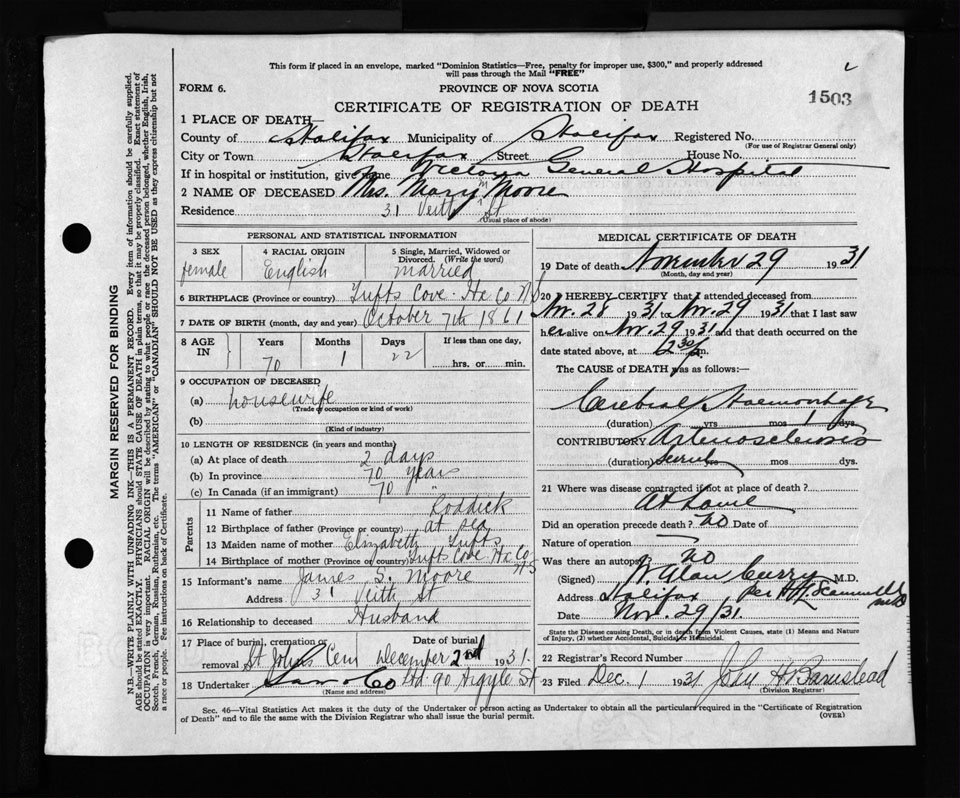 This form if placed in an envelope, marked "Dominion Statistics—Free, penalty for improper use, $300," and properly addressed
will pass through the Mail "FREE"
FORM 6.
PROVINCE OF NOVA SCOTIA
1503
CERTIFICATE OF REGISTRATION OF DEATH
1 PLACE OF DEATH—
County of Halifax Municipality of Halifax Registered No.
(For use of Registrar General only)
City or Town Halifax Street House No.
If in hospital or institution, give name Victoria General Hospital
2 NAME OF DECEASED Mrs. Mary Moore
Residence 31 Veith St
(Usual place of abode)
PERSONAL AND STATISTICAL INFORMATION
3 SEX 4 RACIAL ORIGIN 5 Single, Married, Widowed or
Divorced. (Write the word)
female English married
6 BIRTHPLACE (Province or country) Tufts Cove Hx Co N S
7 DATE OF BIRTH (month, day and year) October 7th 1861
8 AGE IN Years Months Days If less than one day,
70 1 22 hrs. or min.
9 OCCUPATION OF DECEASED
(a) housewife
(Trade or occupation or kind of work)
(b)
(Kind of industry)
10 LENGTH OF RESIDENCE (in years and months)
(a) At place of death 2 days
(b) In province 70 years
(c) In Canada (if an immigrant) 70 "
Parents
11 Name of father Roddick
12 Birthplace of father (Province or country) at sea
13 Maiden name of mother Elizabeth Tufts
14 Birthplace of mother (Province or country) Tufts Cove Hx Co N S
15 Informant's name James S. Moore
Address 31 Veith St
16 Relationship to deceased Husband
17 Place of burial, cremation or Date of burial
removal St Johns Cem December 2nd 1931.
18 Undertaker Snow & Co Ltd 90 Argyle St
(Name and address)
MEDICAL CERTIFICATE OF DEATH
19 Date of death November 29 1931
(Month, day and year)
20 I HEREBY CERTIFY that I attended deceased from
Nov. 28 1931 to Nov. 29 1931 that I last saw
her alive on Nov. 29 1931 and that death occurred on the
date stated above, at 12 30 m.
The CAUSE OF DEATH was as follows:—
Cerebral Haemorrhage
(duration) yrs mos 1 dys.
CONTRIBUTORY Arteriosclerosis
(duration) several yrs mos. dys.
21 Where was disease contracted if not at place of death?
At home
Did an operation precede death? no Date of
Nature of operation
Was there an autopsy? no
(Signed) W. Alan Curry M.D.
Address Halifax per H. Scammell M.D.
Date Nov. 29/31
State the Disease causing Death, or in death from Violent Causes, state (1) Means and Nature
of Injury, (2) whether Accidental, Suicidal or Homicidal.
22 Registrar's Record Number
23 Filed Dec. 1 1931 John H Barnstead
(Division Registrar)
Sec. 46—Vital Statistics Act makes it the duty of the Undertaker or person acting as Undertaker to obtain all the particulars required in the "Certificate of Registration
of Death" and to file the same with the Division Registrar who shall issue the burial permit.
(OVER)
MARGIN RESERVED FOR BINDING
N.B.—WRITE PLAINLY WITH UNFADING INK—THIS IS A PERMANENT RECORD. Every item of information should be carefully supplied.
AGE should be stated EXACTLY. PHYSICIANS should STATE CAUSE OF DEATH in plain terms, so that it may be properly classified. Exact statement of
OCCUPATION is very important. RACIAL ORIGIN will be described by stating to what people or race the deceased person belonged, whether English, Irish,
Scotch, French, German, Russian, Ruthenian, etc. The terms "AMERICAN" or "CANADIAN" SHOULD NOT BE USED as they express citizenship but not
a race or people. See instructions on back of Certificate.